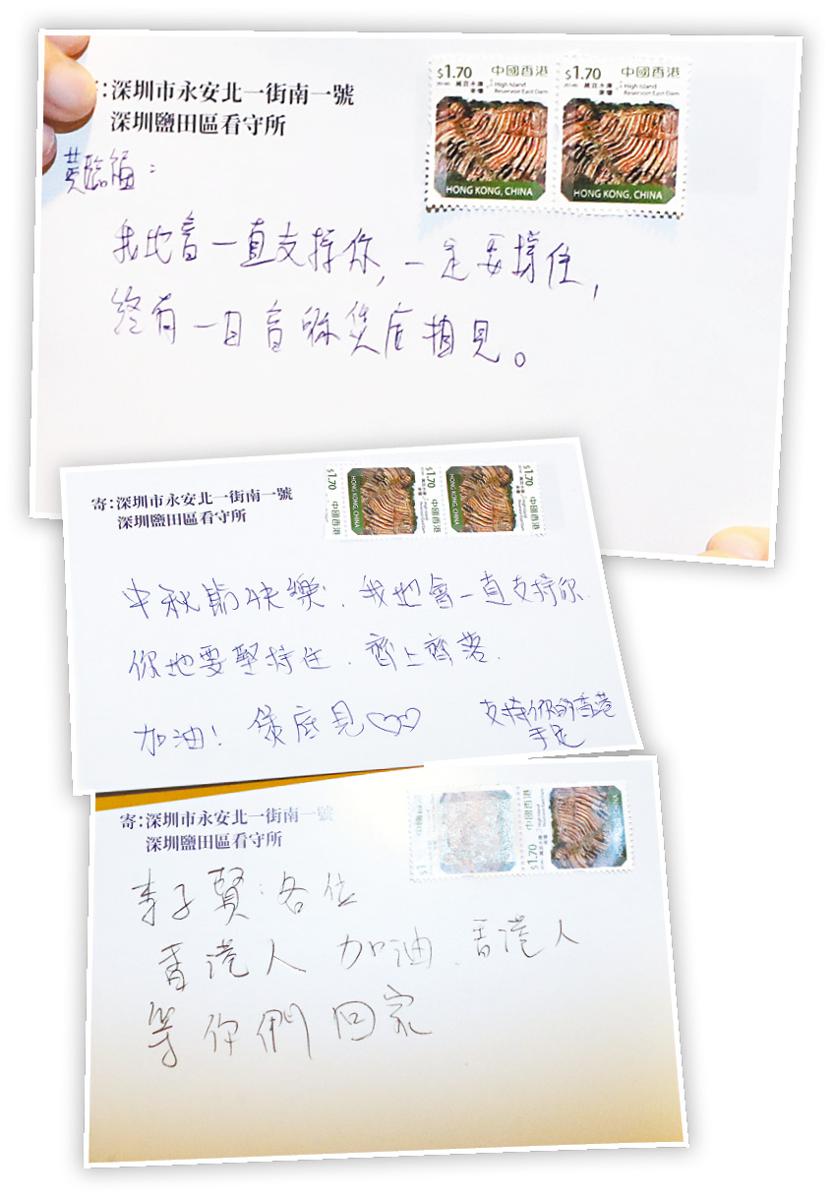 :深圳市永安北一街南一號
深圳鹽田區看守所
$1.70 中國香港
萬宜水庫 High Island
東壩 Reservoir East Dam
HONG KONG, CHINA
$1.70 中國香港
萬宜水庫 High Island
東壩 Reservoir East Dam
HONG KONG, CHINA
黃臨福:
我地會一直支持你,一定要撐住,
終有一日會係煲底相見。
寄:深圳市永安北一街南一號
深圳鹽田區看守所
$1.70 中國香港
HONG KONG, CHINA
$1.70 中國香港
HONG KONG, CHINA
$1.70 中國香港
中秋節快樂.我地會一直支持你.
你地要堅持住.齊上齊落.
加油!煲底見
支持你的香港
手足
寄:深圳市永安北一街南一號
深圳鹽田區看守所
$1.70 中國香港
李子賢:各位
香港人 加油.香港人
等你們回家